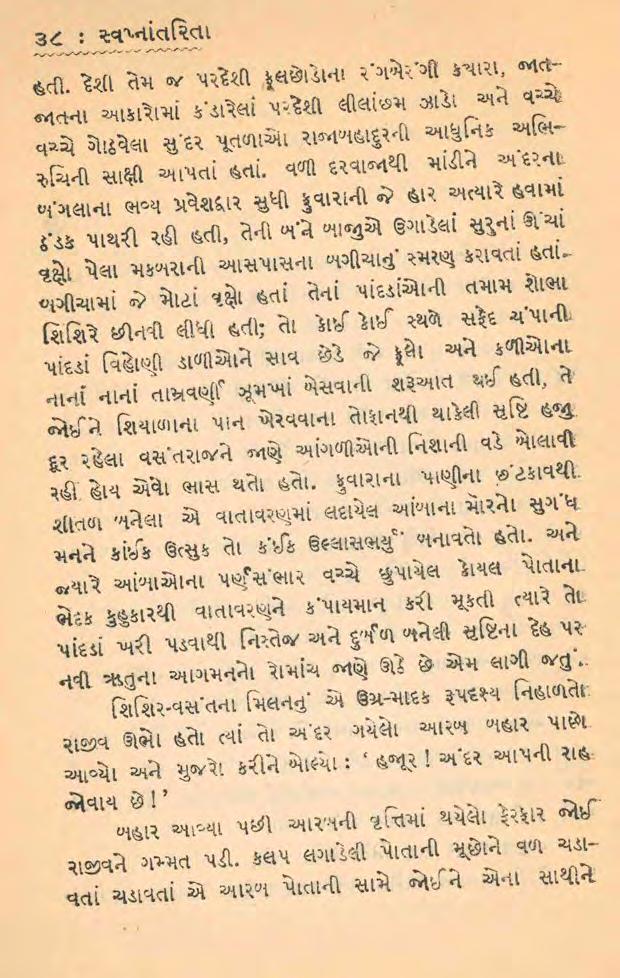 ૩૮ : સ્વપ્નાંતરિતા
હતી. દેશી તેમ જ પરદેશી ફૂલછોડોના રંગબેરંગી કયારા, જાત-
જાતના આકારોમાં કંડારેલાં પરદેશી લીલાંછમ ઝાડો અને વચ્ચે
વચ્ચે ગોઠવેલા સુંદર પૂતળાઓ રાજાબહાદુરની આધુનિક અભિ-
રુચિની સાક્ષી આપતાં હતાં. વળી દરવાજાથી માંડીને અંદરના
બંગલાના ભવ્ય પ્રવેશદ્વાર સુધી ફુવારાની જે હાર અત્યારે હવામાં
ઠંડક પાથરી રહી હતી, તેની બંને બાજુએ ઉગાડેલાં સુરુનાં ઊંચાં
વૃક્ષો પેલા મકબરાની આસપાસના બગીચાનું સ્મરણ કરાવતાં હતાં.
બગીચામાં જે મોટાં વૃક્ષો હતાં તેનાં પાંદડાંઓની તમામ શોભા
શિશિરે છીનવી લીધી હતી; તો કોઈ કોઈ સ્થળે સફેદ ચંપાની
પાંદડાં વિહોણી ડાળીઓને સાવ છેડે જે ફૂલો અને કળીઓના
નાનાં નાનાં તામ્રવર્ણી ઝૂમખાં બેસવાની શરૂઆત થઈ હતી, તે
જોઈને શિયાળાના પાન ખેરવવાના તોફાનથી થાકેલી સૃષ્ટિ હજુ
દૂર રહેલા વસંતરાજને જાણે આંગળીઓની નિશાની વડે બોલાવી
રહી હોય એવો ભાસ થતો હતો. ફુવારાના પાણીના છંટકાવથી
શીતળ બનેલા એ વાતાવરણમાં લદાયેલ આંબાના મૉરનો સુગંધ
મનને કાંઈક ઉત્સુક તો કંઈક ઉલ્લાસભર્યું બનાવતો હતો. અને
જ્યારે આંબાઓના પર્ણસંભાર વચ્ચે છુપાયેલ કોયલ પોતાના
ભેદક કુહુકારથી વાતાવરણને કંપાયમાન કરી મૂકતી ત્યારે તો
પાંદડાં ખરી પડવાથી નિસ્તેજ અને દુર્બળ બનેલી સૃષ્ટિના દેહ પર
નવી ઋતુના આગમનનો રોમાંચ જાણે ઊઠે છે એમ લાગી જતું.
શિશિર-વસંતના મિલનનું એ ઉગ્ર-માદક રૂપદશ્ય નિહાળતો
રાજીવ ઊભો હતો ત્યાં તો અંદર ગયેલો આરબ બહાર પાછો
આવ્યો અને મુજરો કરીને બોલ્યો : ‘ હજૂર ! અંદર આપની રાહ
જોવાય છે !’
બહાર આવ્યા પછી આરબની વૃત્તિમાં થયેલો ફેરફાર જોઈ
રાજીવને ગમ્મત પડી. કલપ લગાડેલી પોતાની મૂછોને વળ ચડા-
વતાં ચડાવતાં એ આરબ પોતાની સામે જોઈને એના સાથીને